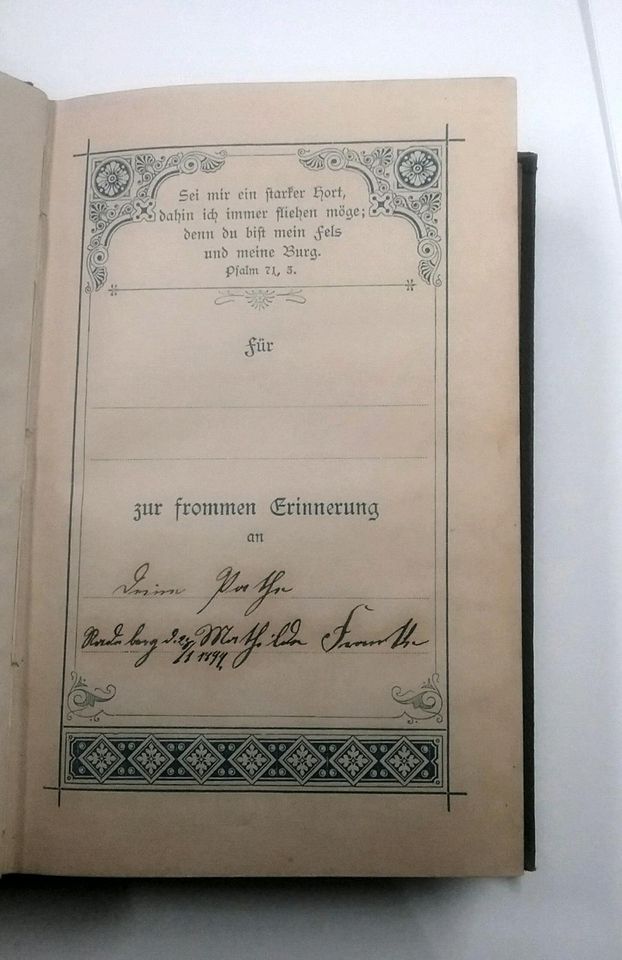 Sei mir ein starker Hort,
dahin ich immer fliehen möge;
denn du bist mein Fels
und meine Burg.
Psalm 71, 3.
Für
zur frommen Erinnerung
an
Deine Pathe
Radeberg d. Mathilde Franke